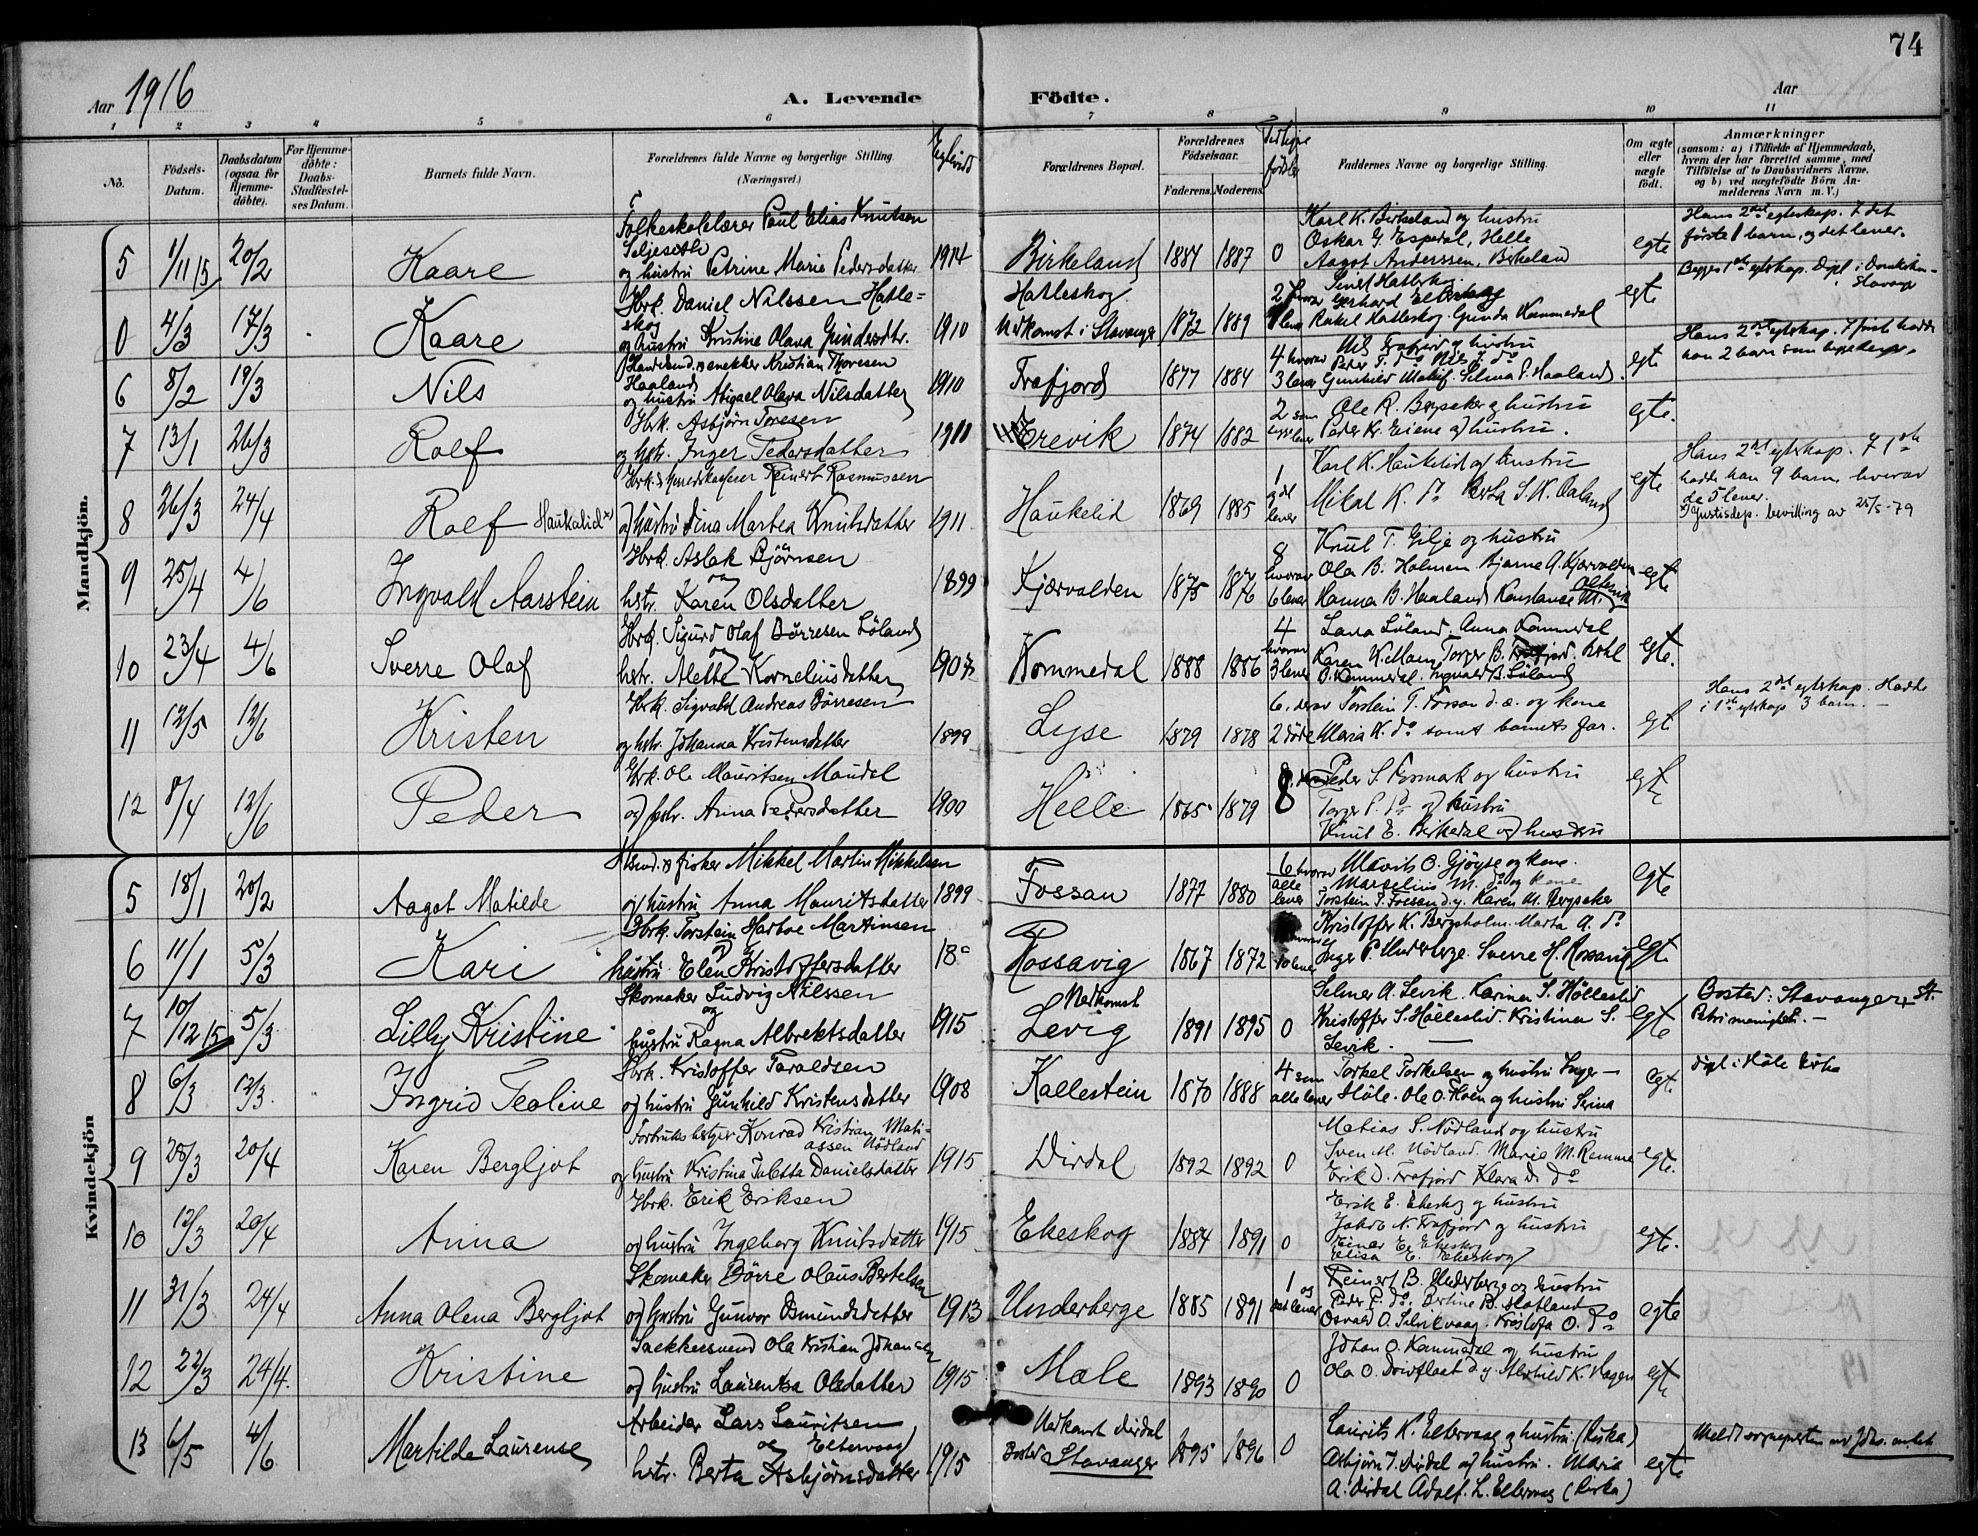 74
Aar 1916
A. Levende Födte.
Aar
1 2 3 4 5 6 7 8 9 10 11
No.
Födsels-Datum.
Daabsdatum (ogsaa for Hjemme-döbte).
For Hjemme-döbte: Daabs-Stadfæstel-ses Datum.
Barnets fulde Navn.
Forældrenes fulde Navne og borgerlige Stilling.
(Næringsvei.)
Forældrenes Bopæl.
Forældrenes Födselsaar.
Faderens. Moderens.
Faddernes Navne og borgerlige Stilling.
Om ægte eller uægte födt.
Anmærkninger
(saasom: a) i Tilfælde af Hjemmedaab, hvem der har forrettet samme, med Tilföielse af to Daabsvidners Navne, og b) ved uægtefödte Börn An-melderens Navn m. V.)
Mandkjön.
Folkeskolelærer Paul Elias Knutsen
5 1/11 15 20/2 Kaare
og hustru Petrine Marie Pedersdatter 1914 Birkeland 1884 1887 0
Karl K. Birkeland og hustru
Oskar G. Espedal, Helle
Aagot Anderssen, Birkeland
egte
Hans 2det egteskap. I det
første 1 barn, og det lever.
Hbrk. Daniel Nilssen Hatle=
skog
0 4/3 17/3 Kaare
og hustru Kristine Olava Gundersdtr. 1910
Hatleskog
Nedkomst i Stavanger 1872 1889
Rakel Hatleskog. Gunda Kommedal
egte
6 8/2 19/3 Nils
snekker Kristian Thoresen
Haaland
og hustru Abigael Olava Nilsdatter 1910 Frafjord 1877 1884
4 hvorav
3 lever
Selma P. Haaland.
egte
Hans 2det egteskap. I først hadde
han 2 barn som begge
7 13/1 26/3 Rolf
Hbrk. Asbjørn Toresen
og hstr. Inger Pedersdatter 1911 Erevik 1874 1882
Ole R. Bergsaker og hustru
Peder Kr. Eiene og hustru.
egte.
8 26/3 24/4 Rolf Haukalid x)
Reinert Rasmussen
og hustru Lina Martea Knutsdatter 1911 Haukelid 1869 1885
1 og det lever
Karl K. Haukelid og hustru
Mikal K. do Berta S. K. Oaland
egte
Hans 2det egteskap. I 1ste
hadde han 9 barn hvorav
de 5 lever.
x) Justisdep. bevilling av 25/5-79
9 25/4 4/6 Ingvald Aarstein
Hbrk. Aslak Bjørnsen
og
hstr. Karen Olsdatter 1899 Kjærvolden 1875 1876
8 hvorav 6 lever
Knut T. Gilje og hustru
Ole B. Holmen Bjarne A. Kjærvolden
Hanna B. Haaland Konstanse M.
egte
10 23/4 4/6 Sverre Olaf
Hbrk. Sigurd Olaf Børresen Løland
og
hstr. Alette Korneliusdatter 1907 Kommedal 1888 1886
4 hvorav 3 lever
Lava Løland. Anna Kommedal
Karen K. Mam Torger B.
B. Kommedal. Ingvald B. Løland
egte.
11 12/5 12/6 Kristen
Hbrk. Sigvald Andreas Børresen
og hstr. Johanna Kristensdatter 1899 Lyse 1879 1878
6. derav 2 døde
Torstein T. Fossan d. æ. og kone
Maria K. do samt barnets far.
egte
Hans 2det egteskap. Hadde
i 1ste egteskap 3 barn. —
12 8/4 12/6 Peder
Hbrk. Ole Mauritsen Maudal
og hstr. Anna Pedersdatter 1900 Helle 1865 1879 8
Peder S. Fosmark og hustru
Torger P. do og hustru
Knut E. Birkedal og hustru
egte
Kvindekjön
5 18/1 20/2 Aagot Matilde
fisker Mikkel Martin Mikkelsen
og hustru Anna Mauritsdatter 1899 Fossan 1877 1880
6 hvorav alle lever
Mavrits O. Gjøyse og kone.
Marselius M. do og kone
Torstein T. Fossan d.y. Karen M. Bergsaker
egte
6 11/1 5/3 Kari
Hbrk. Torstein Hartve Martinsen
hustru Elen Kristoffersdatter Rossavig 1867 1872
10 lever
Kristoffer K. Bergsholm. Marta A. do
Inger P. Underberge. Sverre H. Rossavig
egte
7 10/12 15 5/3 Lilly Kristine
Skomaker Ludvig Nilssen
og
hustru Ragna Albrektsdatter 1915
Nedkomst
Levig 1891 1895 0
Selmer A. Levik. Karinen S. Hølleslid
Kristoffer S. Hølleslid. Kristinen S.
Levik. —
egte
Bosted: Stavanger, St.
Petri menighet. —
8 6/3 12/3 Ingrid Teoline
Hbrk. Kristoffer Taraldsen
og hustru Gunhild Kristensdatter 1908 Kallestein 1870 1888
4 som alle lever
Torkel Torkelsen og hustru Inger —
Høle. Ole O. Hoen og hustru Serina
egte
døpt i Høle kirke
9 28/3 20/4 Karen Bergljot
Konrad Kristian Mati-
assen Nødland
og hustru Kristina Taletta Danielsdatter 1915 Dirdal 1892 1892 0
Matias S. Nødland og hustru
Sven M. Nødland. Marie M. Remme
Erik D. Frafjord Klara D. do
egte.
10 12/3 20/4 Anna
Hbrk. Erik Eriksen
og hustru Ingeborg Knutsdatter 1915 Ekeskog 1884 1891 0
Erik E. Ekeskog og hustru
Jakob N. Frafjord og hustru
Einar E. Ekeskog
Elisa E. Ekeskog
egte.
11 31/3 24/4 Anna Olena Bergljot
Skomaker Børre Olaus Bertelsen
og hustru Gunvor Osmundsdatter 1913 Underberge 1885 1891
1 og det lever
Reinert B. Underberge og hustru
Peder P. do. Bertine B. Hotland
Osvald O. Selvikvaag. Kristofa O. do
egte
12 22/3 24/4. Kristine
Sækkersvend Ola Kristian Johansen
og hustru Laurentsa Olsdatter 1915 Mæle 1893 1890 0
Johan O. Kommedal og hustru
Ola O. d.y. Alvhild K. Hagen
egte
13 6/5 4/6 Martilde Laurense
Arbeider Lars Lauritsen
og Eltervaag
hstr. Berta Asbjørnsdatter 1915
Nedkomst Dirdal
Bosted Stavanger 1895 1896 0
Laurits K. Eltervaag og hustru (Riska)
Asbjørn T. Dirdal og hustru. Maria
A. Dirdal Adolf. L. Eltervaag (Riska)
egte